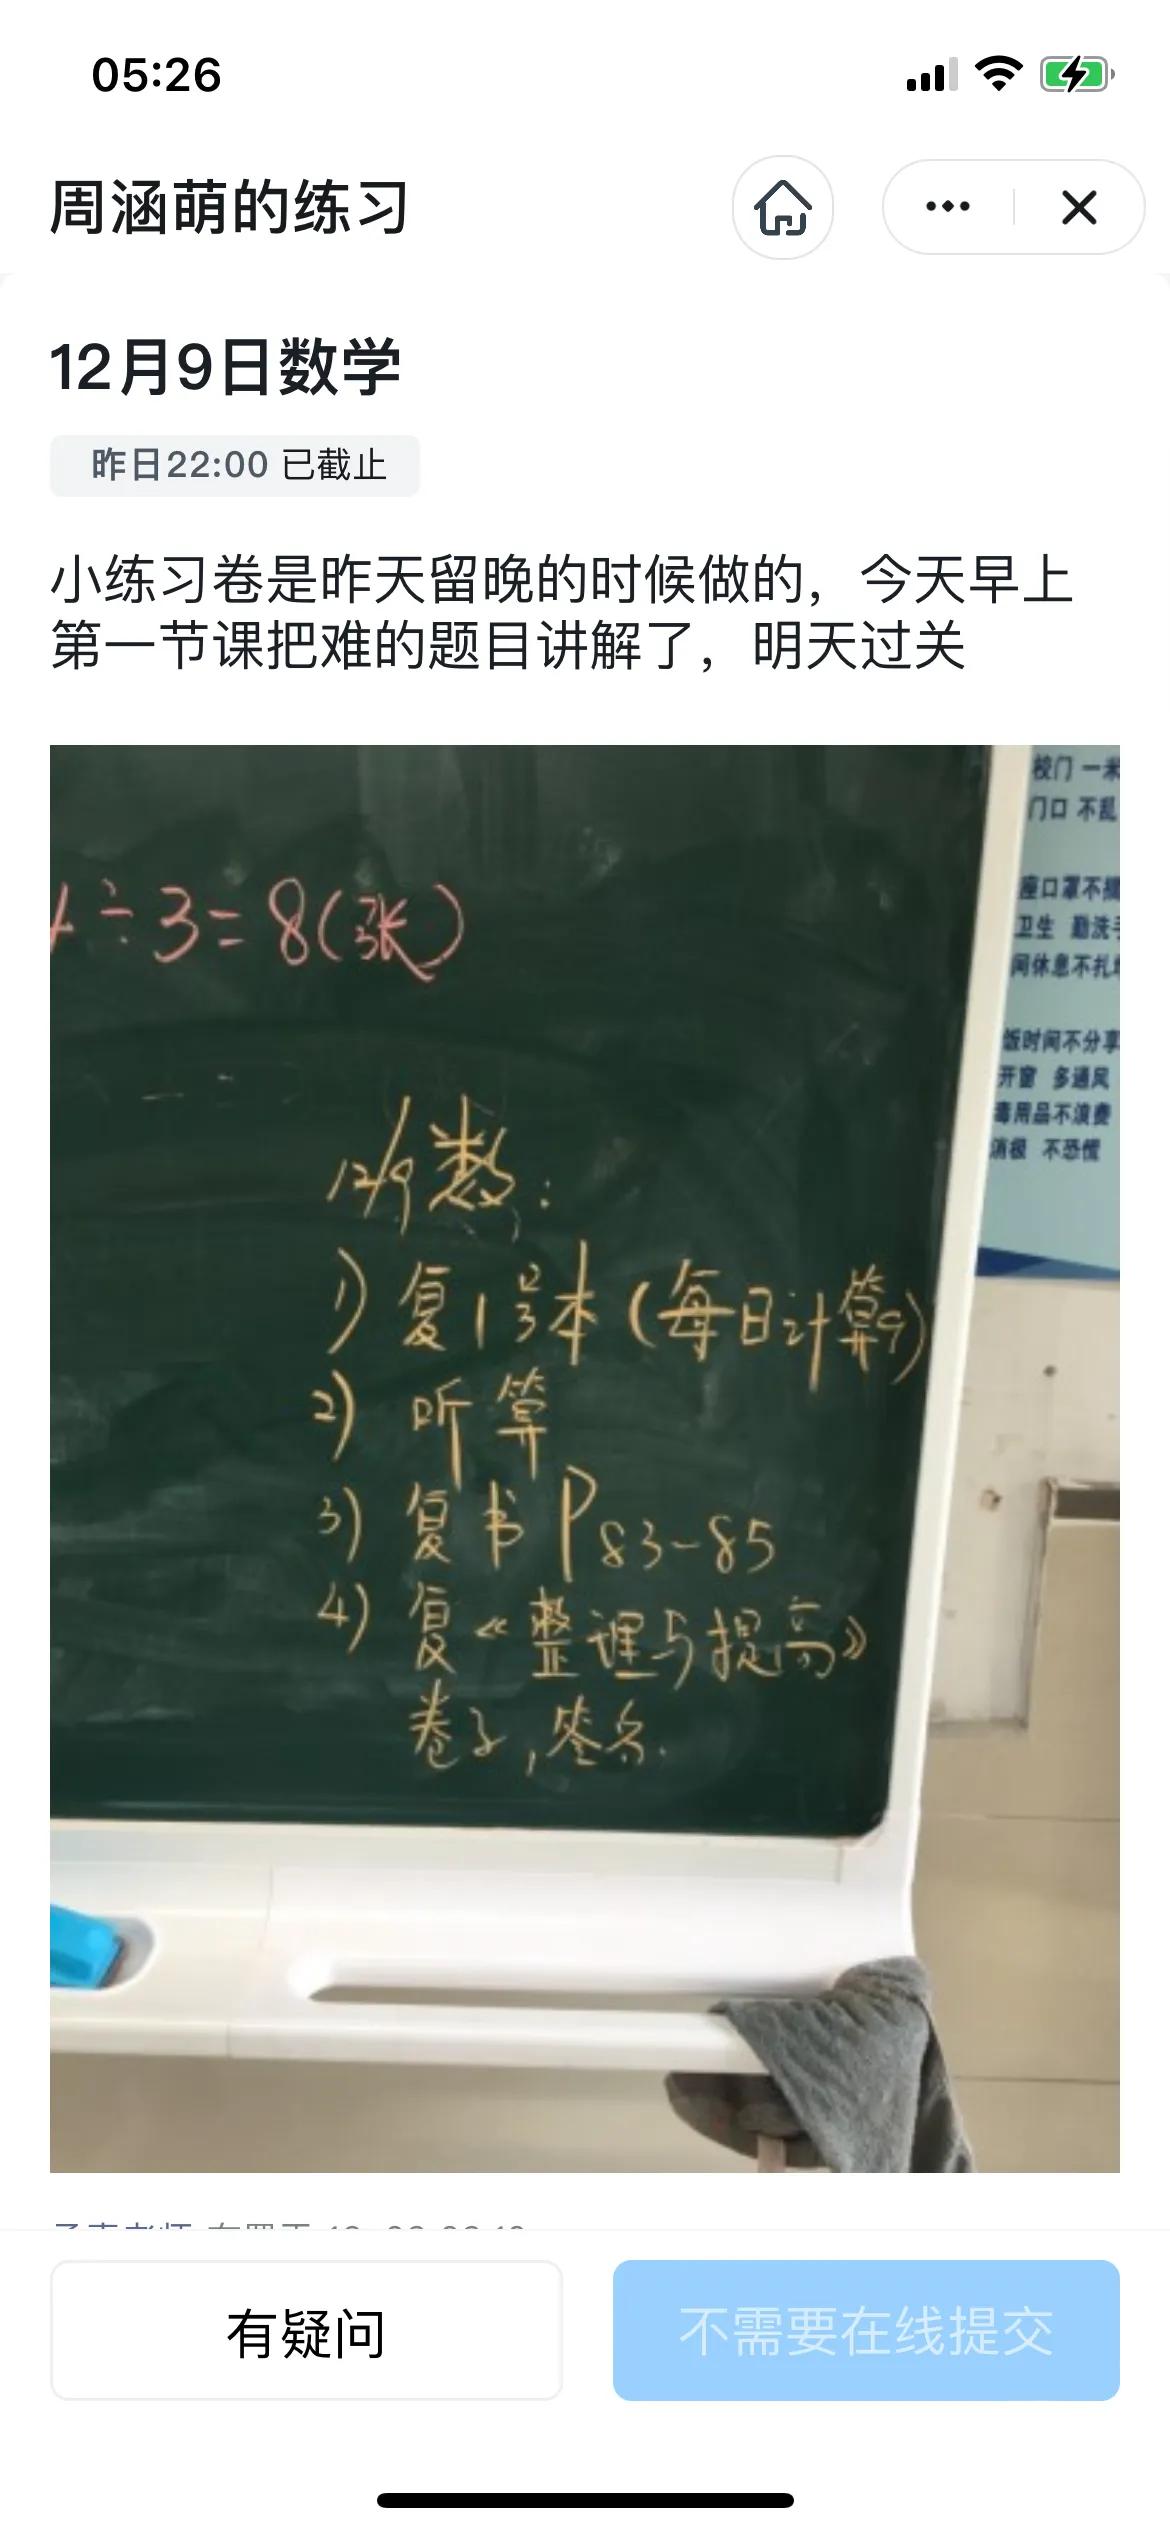 05:26
周涵萌的练习
12月9日数学
昨日22:00 已截止
小练习卷是昨天留晚的时候做的，今天早上
第一节课把难的题目讲解了，明天过关
÷3=8(张)
12/9 数:
1) 复1号本(每日计算9)
2) 听算
3) 复书P83-85
4) 复《整理与提高》
卷子,签名.
校门 一米
门口 不乱
口罩不
卫生 勤洗手
间休息不扎
饭时间不分享
开窗 多通风
毒用品不浪费
消极 不恐慌
有疑问
不需要在线提交